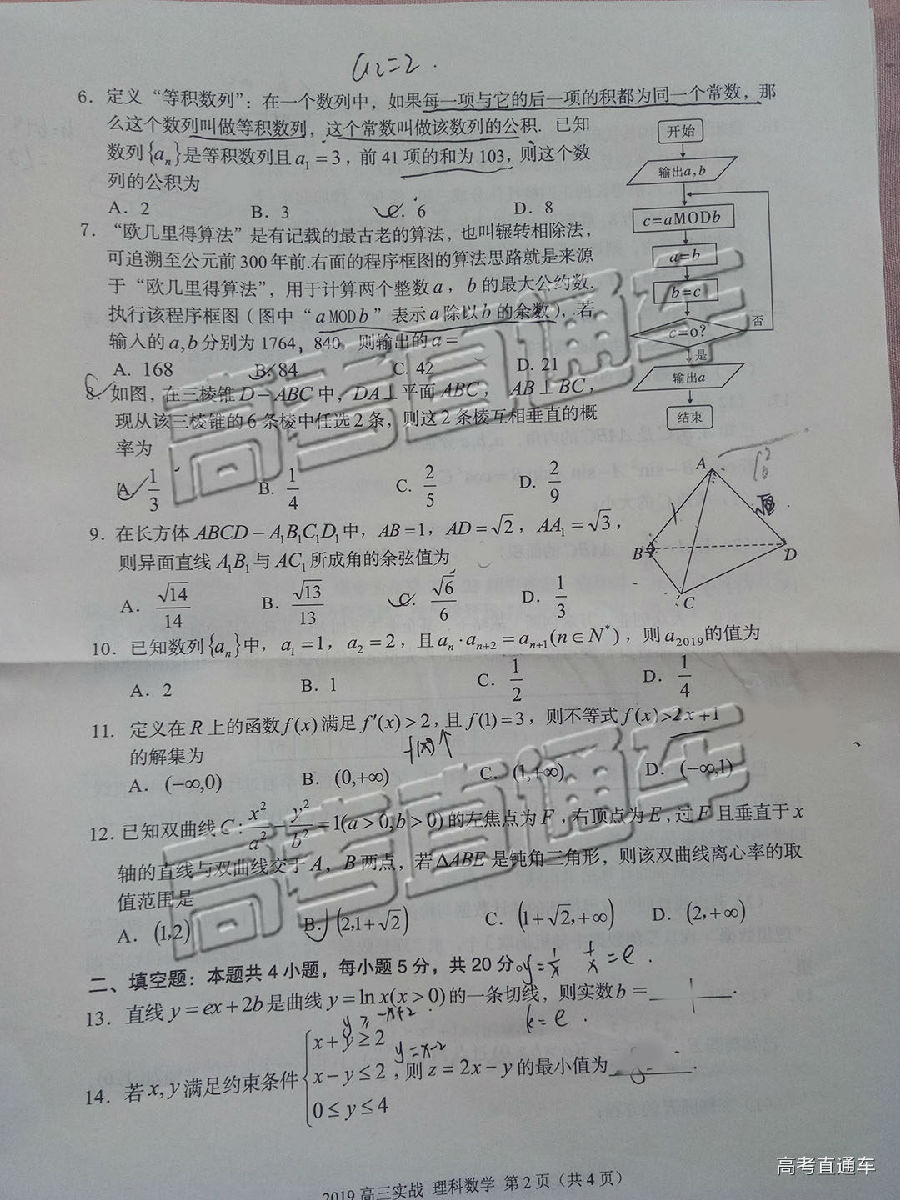 a₂=2.
6. 定义“等积数列”：在一个数列中，如果每一项与它的后一项的积都为同一个常数，那
么这个数列叫做等积数列，这个常数叫做该数列的公积. 已知
数列{aₙ}是等积数列且a₁=3，前41项的和为103，则这个数
列的公积为
A. 2 B. 3 C. 6 D. 8
7. “欧几里得算法”是有记载的最古老的算法，也叫辗转相除法，
可追溯至公元前300年前.右面的程序框图的算法思路就是来源
于“欧几里得算法”，用于计算两个整数a，b的最大公约数.
执行该程序框图（图中“aMODb”表示a除以b的余数），若
输入的a,b分别为1764，840，则输出的a=
A. 168 B. 84 C. 42 D. 21
开始
输出a,b
c=aMODb
a=b
b=c
c=0?
否
是
输出a
结束
8. 如图，在三棱锥D-ABC中，DA⊥平面ABC，AB⊥BC，
现从该三棱锥的6条棱中任选2条，则这2条棱互相垂直的概
率为
A. 1/3 B. 1/4 C. 2/5 D. 2/9
A
B
C
D
9. 在长方体ABCD-A₁B₁C₁D₁中，AB=1，AD=√2，AA₁=√3，
则异面直线A₁B₁与AC₁所成角的余弦值为
A. √14/14 B. √13/13 C. √6/6 D. 1/3
10. 已知数列{aₙ}中，a₁=1，a₂=2，且aₙ·aₙ₊₂=aₙ₊₁(n∈N*)，则a₂₀₁₉的值为
A. 2 B. 1 C. 1/2 D. 1/4
11. 定义在R上的函数f(x)满足f′(x)>2，且f(1)=3，则不等式f(x)>2x+1
的解集为
f(x)↑
A. (-∞,0) B. (0,+∞) C. (1,+∞) D. (-∞,1)
12. 已知双曲线C：x²/a²-y²/b²=1(a>0,b>0)的左焦点为F，右顶点为E，过F且垂直于x
轴的直线与双曲线交于A，B两点，若△ABE是钝角三角形，则该双曲线离心率的取
值范围是
A. (1,2) B. (2,1+√2) C. (1+√2,+∞) D. (2,+∞)
二、填空题：本题共4小题，每小题5分，共20分。
y=1/x 1/x=e.
13. 直线y=ex+2b是曲线y=lnx(x>0)的一条切线，则实数b=
k=e.
y≥-x+2
y=x-2
14. 若x,y满足约束条件{x+y≥2
x-y≤2
0≤y≤4
，则z=2x-y的最小值为
2019高三实战 理科数学 第2页（共4页）
高考直通车
高考直通车
高考直通车